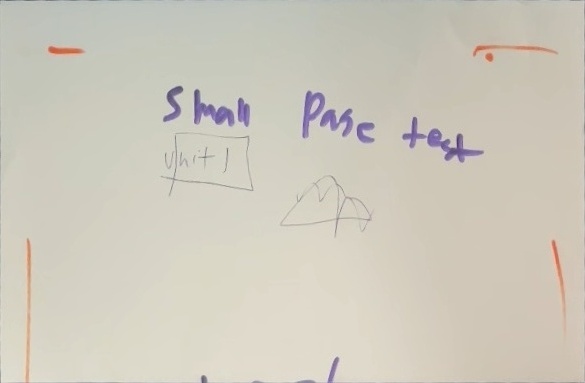 Small Page test
Unit 1